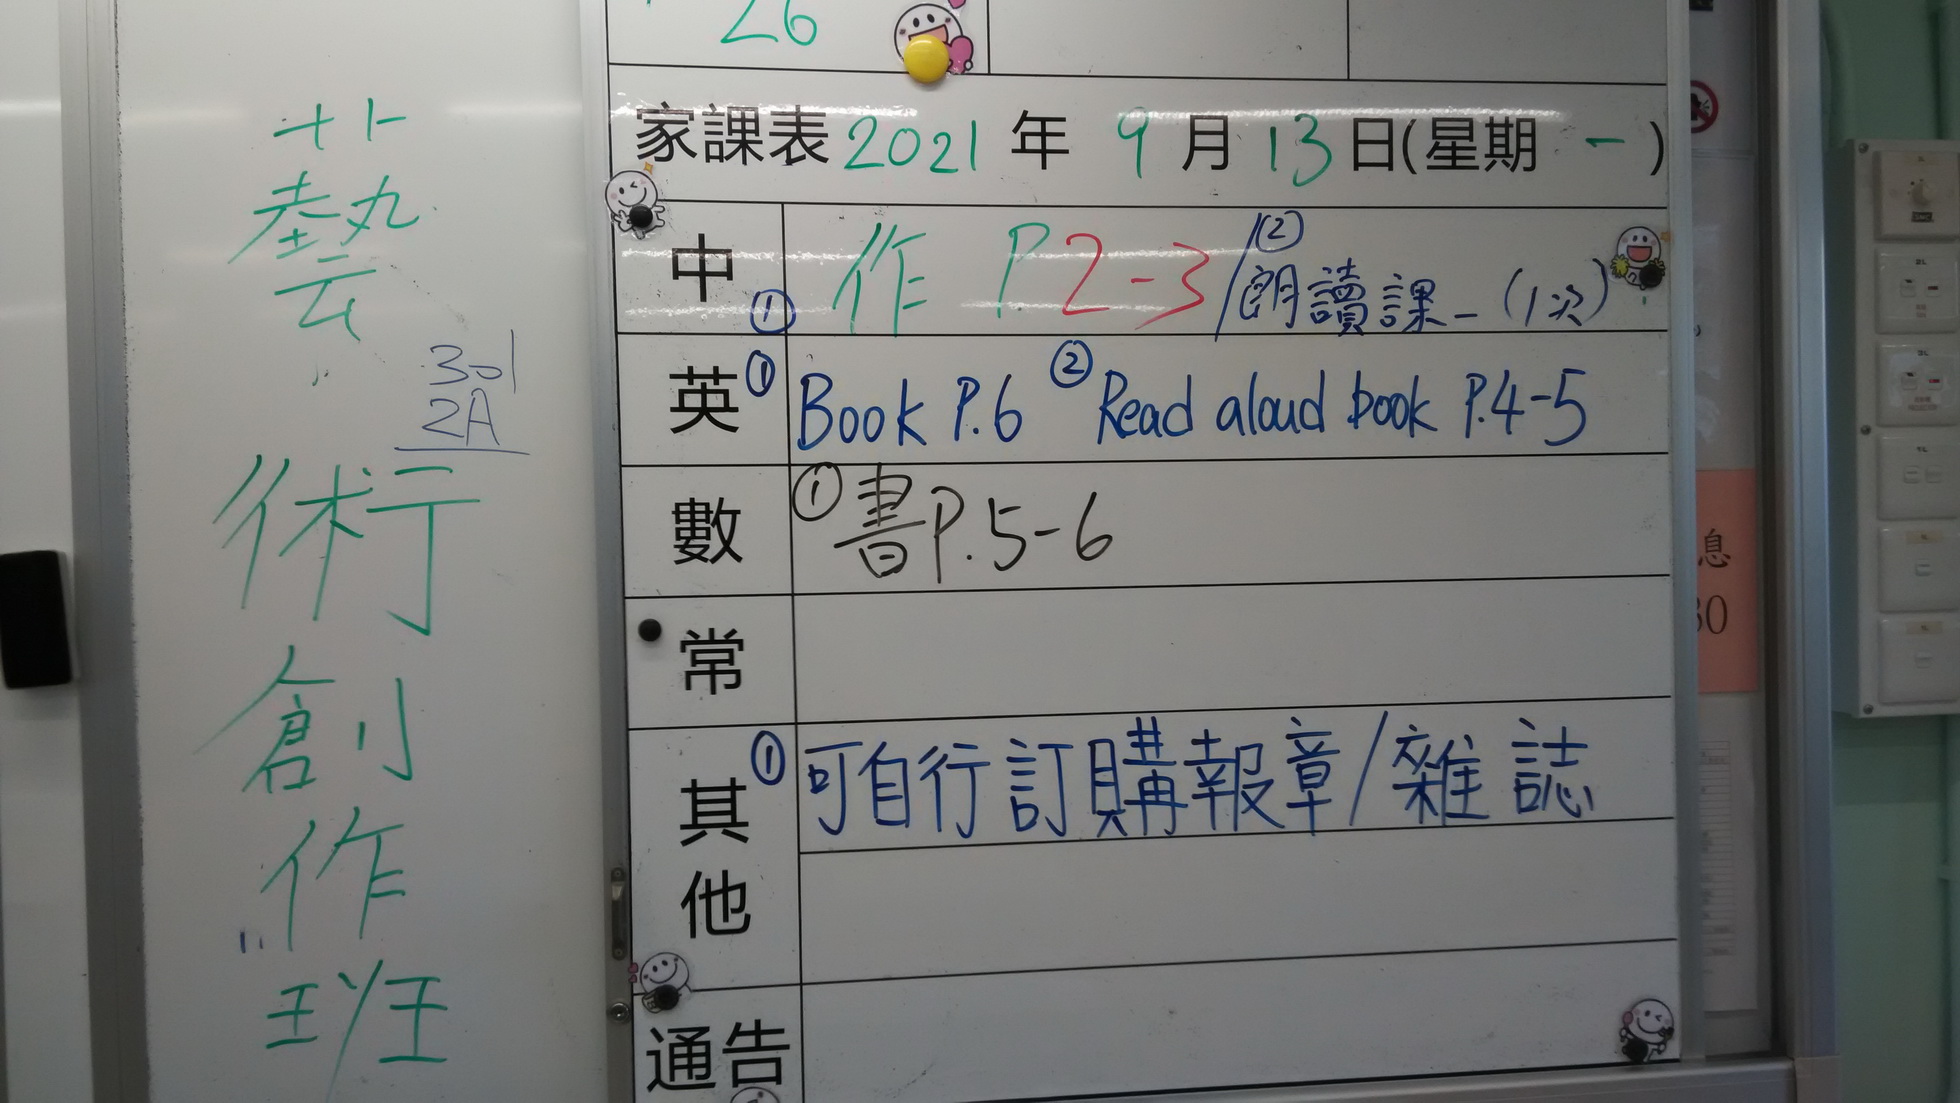 藝術創作班
301
2A
26
家課表 2021 年 9 月 13 日(星期 一 )
中 ① 作 P 2-3 / ② 朗讀課一 (1次)
英 ① Book P.6 ② Read aloud book P.4-5
數 ① 書 P.5-6
常
其他 ① 可自行訂購報章/雜誌
通告
息
30